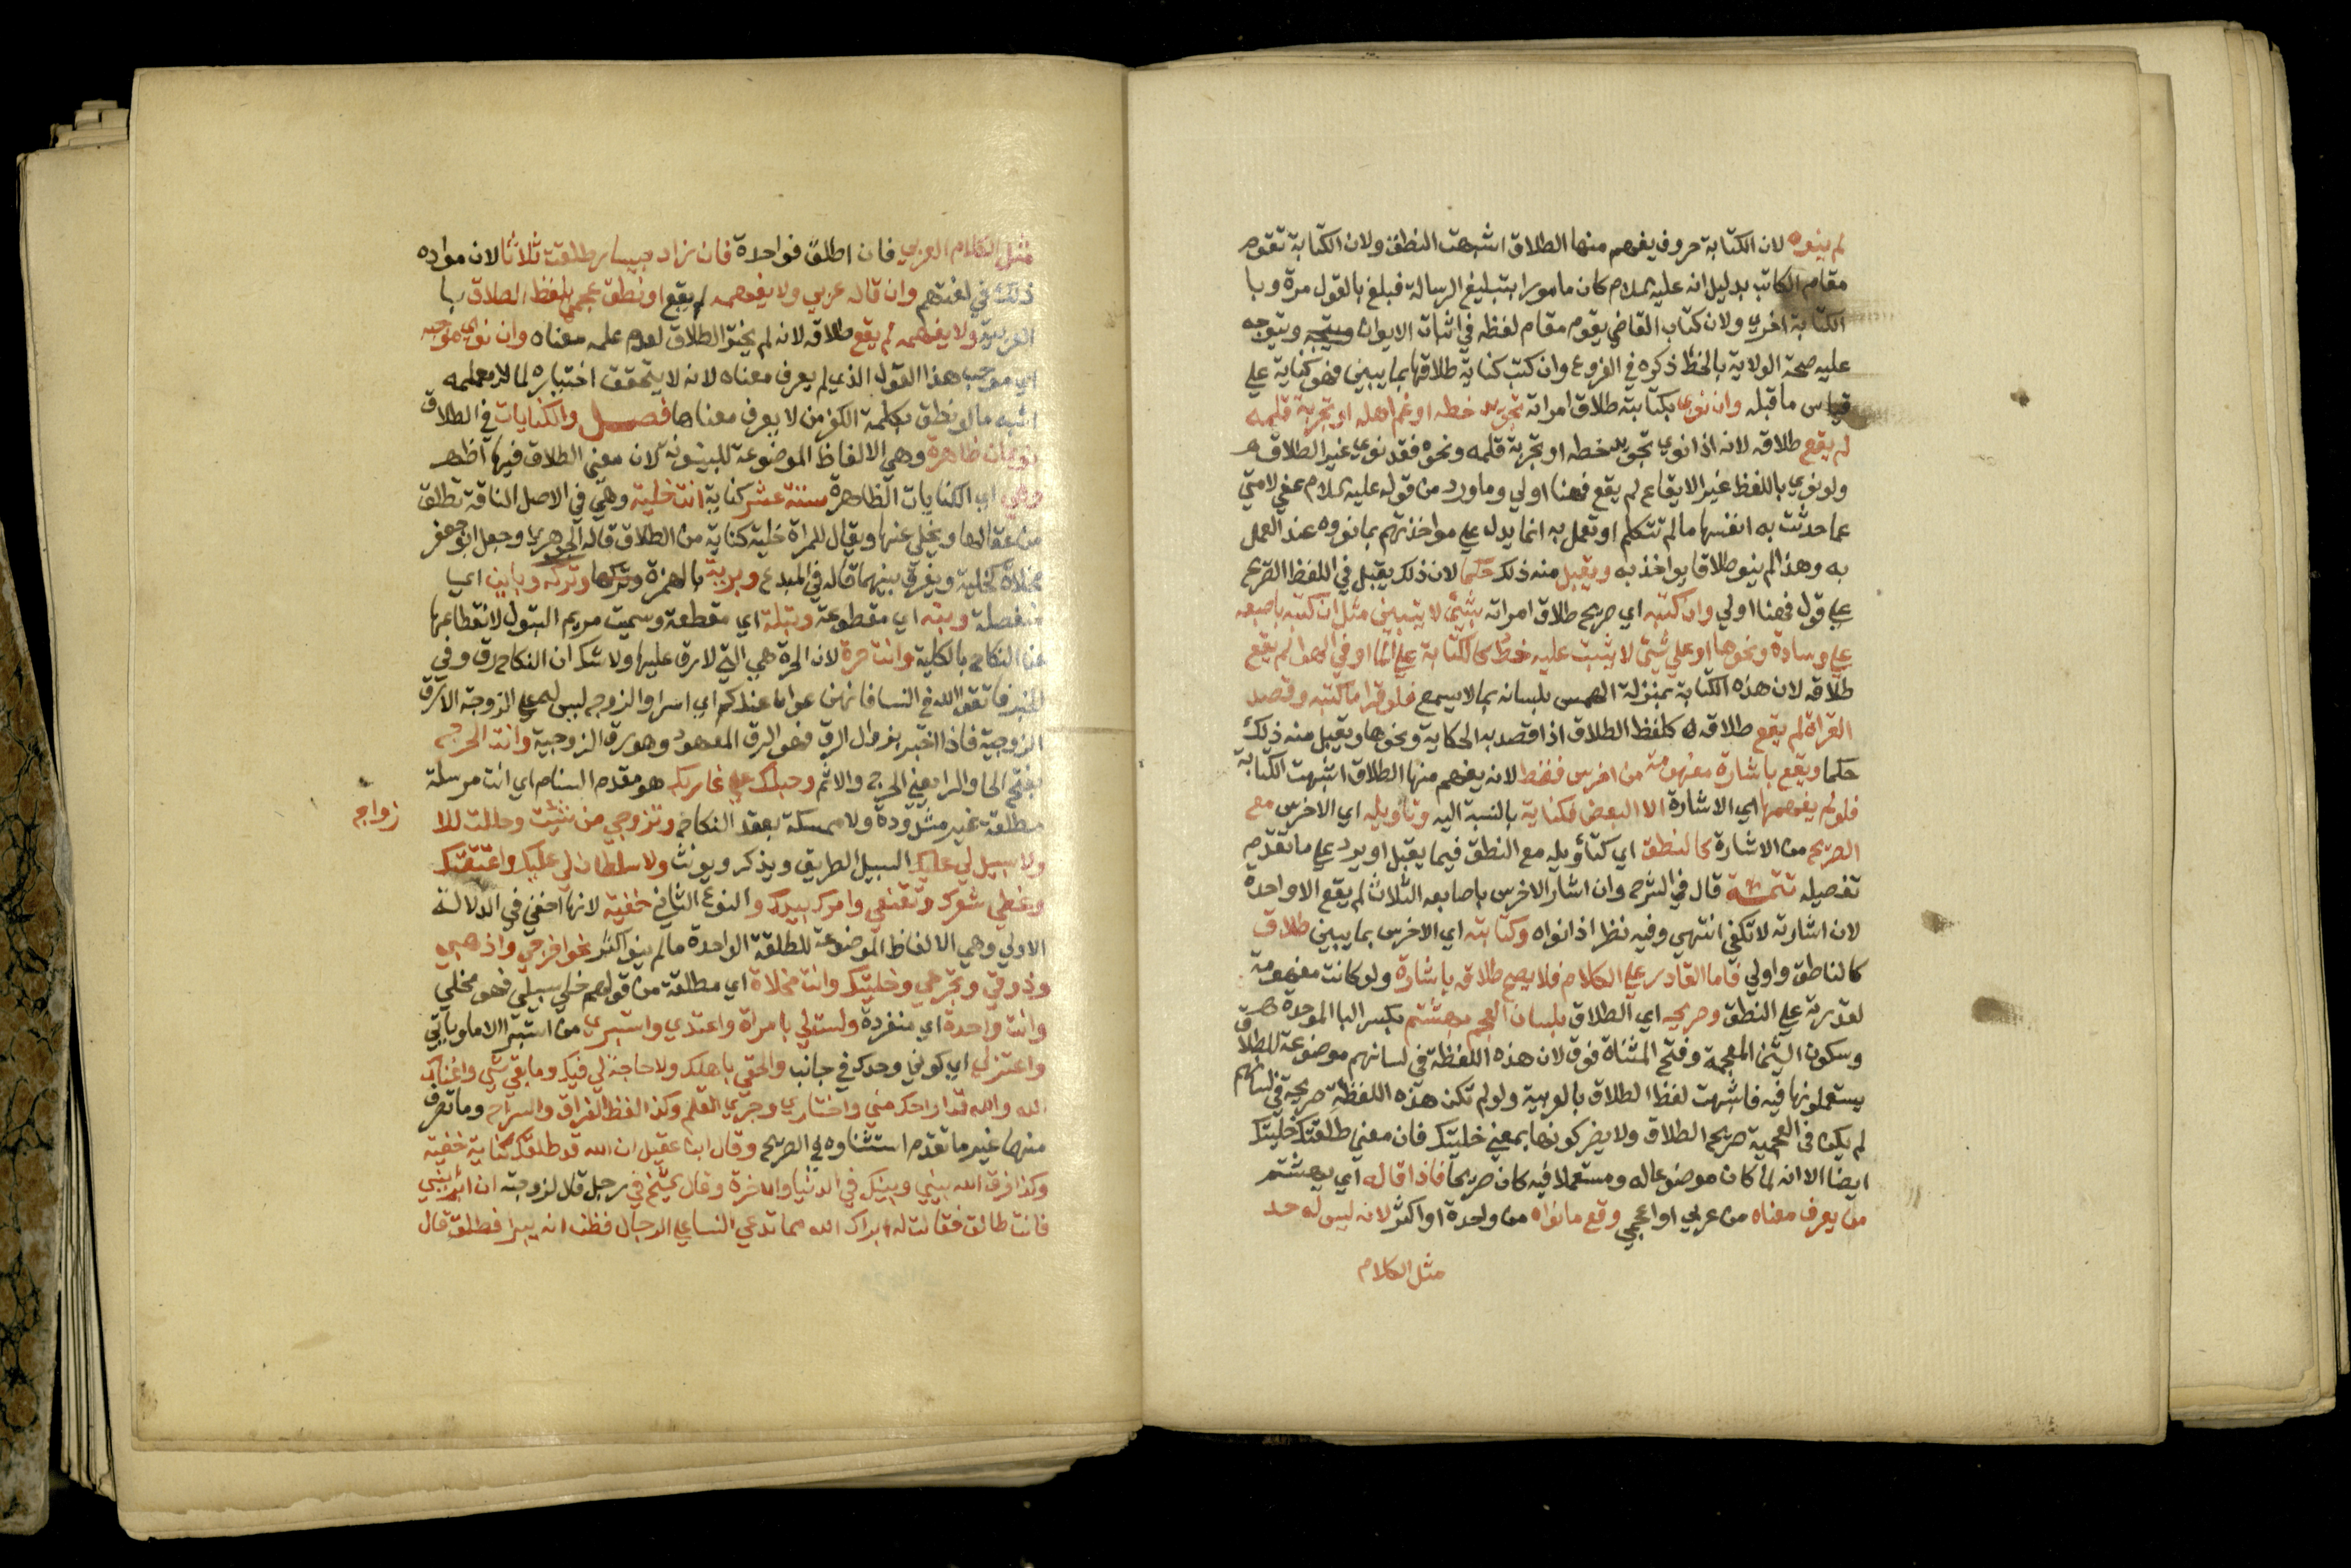 لم ينوه لان الكتابة حروف يفهم منها الطلاق اشبهت النطق ولان الكتابة تقوم
مقام الكاتب بدليل انه عليه السلام كان مامورا بتبليغ الرسالة فبلغ بالقول مرة وبا
الكتابة اخري ولان كتاب القاضي يقوم مقام لفظه في اثبات الديوان ويتجه ويتوجه
عليه صحة الولاية بالخط ذكره في الفروع وان كتب كناية طلاقها بما يبين فهو كناية علي
قياس ما قبله وان نوي بكتابته طلاق امراته تجويد خطه او غم اهله او تجربة قلمه
لم يقع طلاقه لانه اذا نوي تجويد خطه او تجربة قلمه ونحوه فقد نوي غير الطلاق
ولو نوي باللفظ غير الايقاع لم يقع فهنا اولي وما ورد من قوله عليه السلام عفي لامتي
عما حدثت به انفسها ما لم تتكلم او تعمل به انما يدل علي مواخذتهم بما نووه عند العمل
به وهذا لم ينو طلاقا يواخذ به ويقبل منه ذلك حكما لان ذلك يقبل في اللفظ الصريح
علي قول فهنا اولي وان كتبه اي صريح طلاق امراته بشئ لا يتبين مثل ان كتبه باصبعه
علي وسادة ونحوها او علي شئ لا يثبت عليه خط كالكتابة علي الما او في الهوا لم يقع
طلاقه لان هذه الكتابة بمنزلة الهمس بلسانه بما لا يسمع فلو قرا ما كتبه وقصد
القراة لم يقع طلاقه كلفظ الطلاق اذا قصد به الحكاية ونحوها ويقبل منه ذلك
حكما ويقع باشارة مفهومة من اخرس فقط لانه يفهم منها الطلاق اشبهت الكتابة
فلو لم يفهمها اي الاشارة الا البعض فكناية بالنسبة اليه وتاويله اي الاخرس مع
الصريح من الاشارة كالنطق اي كتأويله مع النطق فيما يقبل او يرد علي ما تقدم
تفصيله تتمة قال في الشرح وان اشار الاخرس باصابعه الثلاث لم يقع الا واحدة
لان اشارته لا تكفي انتهي وفيه نظر اذا نواه وكتابته اي الاخرس بما يبين طلاق
كالناطق واولي فاما القادر علي الكلام فلا يصح طلاقه باشارة ولو كانت مفهومة
لقدرته علي النطق وصريحه اي الطلاق بلسان العجم بهشتم بكسر البا الموحدة
وسكون الشين المعجمة وفتح المثناة فوق لان هذه اللفظة في لسانهم موضوعة للطلاق
يستعملونها فيه فاشبهت لفظ الطلاق بالعربية ولو لم تكن هذه اللفظة صريحة في لسانهم
لم يكن في العجمية صريح الطلاق ولا يضر كونها بمعني خليتك فان معني طلقتك خليتك
ايضا الا انه لما كان موضوعا له ومستعملا فيه كان صريحا فاذا قاله اي بهشتم
من يعرف معناه من عربي او اعجمي وقع ما نواه من واحدة او اكثر لانه ليس له حد
مثل الكلام
مثل الكلام العربي فان اطلق فواحدة فان زاد بسيار طلقت ثلاثا لان مواده
ذلك في لغتهم وان قاله عربي ولا يفهمه لم يقع او نطق عجمي بلفظ الطلاق با
العربية ولا يفهمه لم يقع طلاقه لانه لم يختر الطلاق لعدم علمه معناه وان نوي موجبه
اي موجب هذا القول الذي لم يعرف معناه لانه لا يتحقق اختياره لما لا يعلمه
اشبه ما لو نطق بكلمة الكفر من لا يعرف معناها فصل والكنايات في الطلاق
نوعان ظاهرة وهي الالفاظ الموضوعة للبينونة لان معني الطلاق فيها اظهر
وهي اي الكنايات الظاهرة ستة عشر كناية انت خلية وهي في الاصل الناقة تطلق
من عقالها ويخلي عنها ويقال للمراة خلية كناية من الطلاق قاله الجوهري وجعل ابو جعفر
مخلاة كخلية ويفرق بينهما قاله في المبدع وبرية بالهمزة وتركه وباين اي
منفصلة وبتة اي مقطوعة وبتلة اي مقطعة وسميت مريم البتول لانقطاعها
عن النكاح بالكلية وانت حرة لان الحرة هي التي لا رق عليها ولا شك ان النكاح رق وفي
الخبر فاتقوا الله في النسا فانهن عوان عندكم اي اسرا والزوج ليس له علي الزوجة الا رق
الزوجية فاذا اخبر بزوال الرق فهو الرق المعهود وهو رق الزوجية وانت الحرج
بفتح الحا والرا يعني الحرج والاثم وحبلك علي غاربك هو مقدم السنام اي انت مرسلة
مطلقة غير مشدودة ولا ممسكة بعقد النكاح وتزوجي من شئت وحللت للا
زواج
ولا سبيل لي عليك السبيل الطريق ويذكر ويونث ولا سلطان لي عليك واعتقتك
وغطي شعرك وتقنعي وامرك بيدك والنوع الثاني خفية لانها اخفي في الدلالة
الاولي وهي الالفاظ الموضوعة للطلقة الواحدة ما لم ينو اكثر نحو اخرجي واذهبي
وذوقي وتجرعي وخليتك وانت مخلاة اي مطلقة من قولهم خلي سبيلي فهو مخلي
وانت واحدة اي منفردة ولست لي بامراة واعتدي واستبري من استبرا الاما وياتي
واعتزلي اي كوني وحدك في جانب والحقي باهلك ولا حاجة لي فيك وما بقي شي واغناك
الله والله قد اراحك مني واختاري وجري القلم وكذا لفظ الفراق والسراح وما تصرف
منها غير ما تقدم استثناوه في الصريح وقال ابن عقيل ان الله قد طلقك كناية خفية
وكذا فرق الله بيني وبينك في الدنيا والاخرة وقال شيخ في رجل قال لزوجته ان ابرئتيني
فانت طالق فقالت له ابراك الله مما تدعي النسا علي الرجال فظن انه يبرا فطلق قال